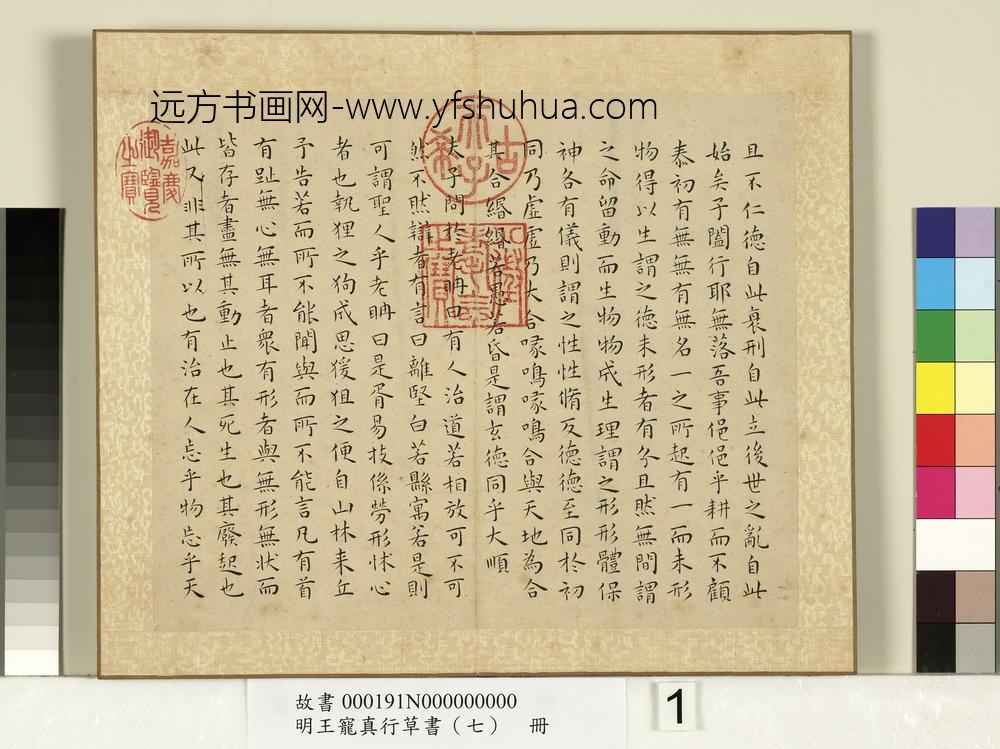 远方书画网-www.yfshuhua.com
且不仁德自此衰刑自此立後世之亂自此
始矣子闔行耶無落吾事俋俋乎耕而不顧
泰初有無無有無名一之所起有一而未形
物得以生謂之德未形者有分且然無間謂
之命留動而生物物成生理謂之形形體保
神各有儀則謂之性性脩反德德至同於初
同乃虛虛乃大合喙鳴喙鳴合與天地為合
其合緡緡若愚若昏是謂玄德同乎大順
夫子問於老聃曰有人治道若相放可不可
然不然辯者有言曰離堅白若縣寓若是則
可謂聖人乎老聃曰是胥易技係勞形怵心
者也執狸之狗成思猨狙之便自山林来丘
予告若而所不能聞與而所不能言凡有首
有趾無心無耳者衆有形者與無形無状而
皆存者盡無其動止也其死生也其廢起也
此又非其所以也有治在人忘乎物忘乎天
古希天子
嘉慶御覽之寶
故書 000191N000000000
明王寵真行草書（七） 冊
1